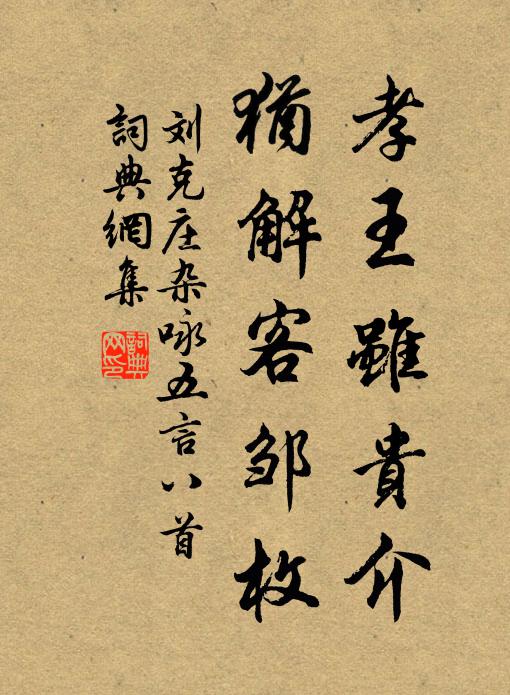 孝王雖貴介
猶解客邹枚
刘克庄杂咏五言八首
詞典網集
詞典网印